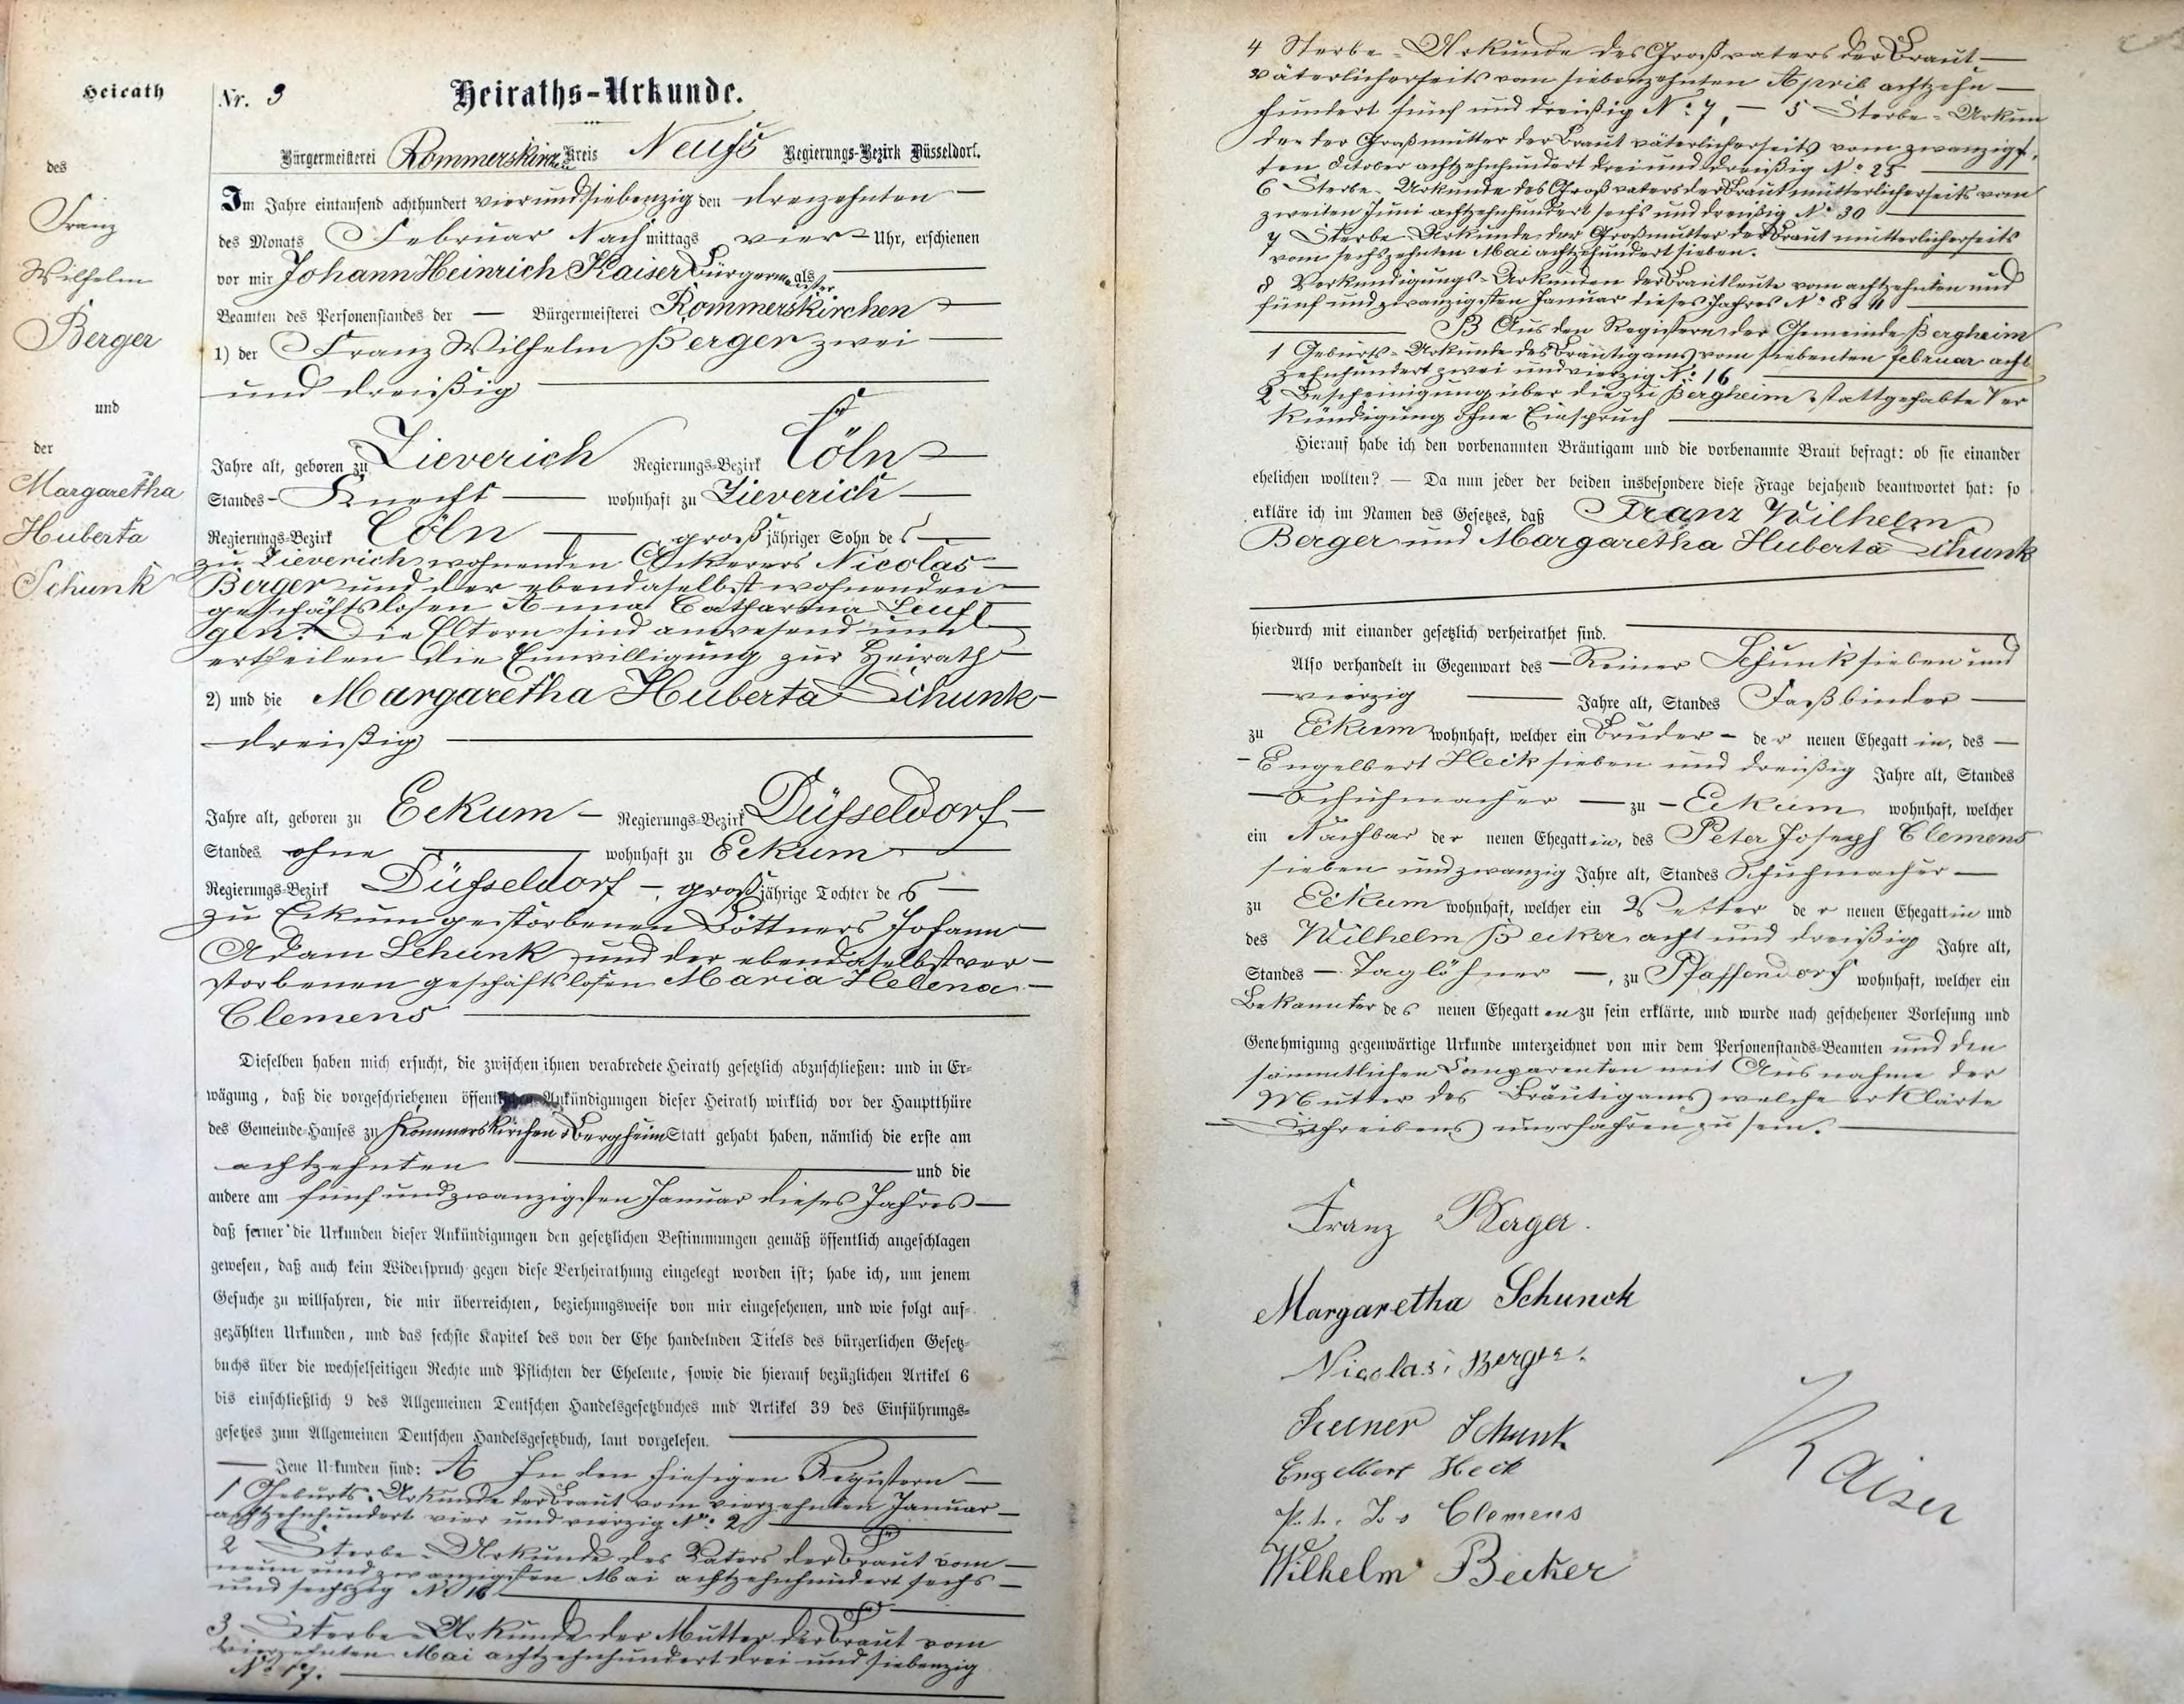 Heirath
des
Franz
Wilhelm
Berger
und
der
Margaretha
Huberta
Schunk
Nr. 3
Heiraths-Urkunde.
Bürgermeisterei Rommerskirchen Kreis Neuß Regierungs-Bezirk Düsseldorf.
Im Jahre eintausend achthundert vierundsiebenzig den dreizehnten
des Monats Februar Nachmittags vier Uhr, erschienen
vor mir Johann Heinrich Kaiser Bürgermeister als
Beamten des Personenstandes der — Bürgermeisterei Rommerskirchen
1) der Franz Wilhelm Berger zwei
und dreißig
Jahre alt, geboren zu Zieverich Regierungs-Bezirk Cöln
Standes Knecht wohnhaft zu Zieverich
Regierungs-Bezirk Cöln großjähriger Sohn des
zu Zieverich wohnenden Ackerers Nicolas
Berger und der ebendaselbst wohnenden
geschäftslosen Anna Catharina Leuf
gen. Die Eltern sind anwesend und
ertheilen die Einwilligung zur Heirath
2) und die Margaretha Huberta Schunk
dreißig
Jahre alt, geboren zu Eckum Regierungs-Bezirk Düsseldorf
Standes ohne wohnhaft zu Eckum
Regierungs-Bezirk Düsseldorf, großjährige Tochter des
zu Eckum gestorbenen Böttners Johann
Adam Schunk und der ebendaselbst ver-
storbenen geschäftslosen Maria Helena
Clemens
Dieselben haben mich ersucht, die zwischen ihnen verabredete Heirath gesetzlich abzuschließen: und in Er-
wägung, daß die vorgeschriebenen öffentlichen Ankündigungen dieser Heirath wirklich vor der Hauptthüre
des Gemeinde-Hauses zu Rommerskirchen & Bergheim Statt gehabt haben, nämlich die erste am
achtzehnten und die
andere am fünf und zwanzigsten Januar dieses Jahres
daß ferner die Urkunden dieser Ankündigungen den gesetzlichen Bestimmungen gemäß öffentlich angeschlagen
gewesen, daß auch kein Widerspruch gegen diese Verheirathung eingelegt worden ist; habe ich, um jenem
Gesuche zu willfahren, die mir überreichten, beziehungsweise von mir eingesehenen, und wie folgt auf-
gezählten Urkunden, und das sechste Kapitel des von der Ehe handelnden Titels des bürgerlichen Gesetz-
buchs über die wechselseitigen Rechte und Pflichten der Eheleute, sowie die hierauf bezüglichen Artikel 6
bis einschließlich 9 des Allgemeinen Deutschen Handelsgesetzbuches und Artikel 39 des Einführungs-
gesetzes zum Allgemeinen Deutschen Handelsgesetzbuch, laut vorgelesen.
Jene Urkunden sind: A In den hiesigen Registern
1 Geburts-Urkunde der Braut vom vierzehnten Januar
achtzehnhundert vier und vierzig No: 2
2 Sterbe-Urkunde des Vaters der Braut vom
neun und zwanzigsten Mai achtzehnhundert sechs
und sechszig No 16
3 Sterbe-Urkunde der Mutter der Braut vom
vierzehnten Mai achtzehnhundert drei und siebenzig
No 17.
4 Sterbe-Urkunde des Großvaters der Braut
väterlicherseits vom siebenzehnten April achtzehn
hundert fünf und dreißig No: 7, — 5 Sterbe-Urkun
de der Großmutter der Braut väterlicherseits vom zwanzigs,
ten October achtzehnhundert drei und dreißig No: 25
6 Sterbe-Urkunde des Großvaters der Braut mütterlicherseits vom
zweiten Juni achtzehnhundert sechs und dreißig No: 30
7 Sterbe-Urkunde der Großmutter der Braut mütterlicherseits
vom sechszehnten Mai achtzehnhundert sieben.
8 Verkündigungs-Urkunden der Brautleute vom achtzehnten und
fünf und zwanzigsten Januar dieses Jahres No: 8 & 11
B Aus den Registern der Gemeinde Bergheim
1 Geburts-Urkunde des Bräutigams vom siebenten Februar acht
zehnhundert zwei und vierzig No: 16
2 Bescheinigung über die zu Bergheim stattgehabte Ver
kündigung ohne Einspruch
Hierauf habe ich den vorbenannten Bräutigam und die vorbenannte Braut befragt: ob sie einander
ehelichen wollten? — Da nun jeder der beiden insbesondere diese Frage bejahend beantwortet hat: so
erkläre ich im Namen des Gesetzes, daß Franz Wilhelm
Berger und Margaretha Huberta Schunk
hierdurch mit einander gesetzlich verheirathet sind.
Also verhandelt in Gegenwart des Reiner Schunk sieben und
vierzig Jahre alt, Standes Faßbinder
zu Eckum wohnhaft, welcher ein Bruder der neuen Ehegattin, des
Engelbert Heck sieben und dreißig Jahre alt, Standes
Schuhmacher zu Eckum wohnhaft, welcher
ein Nachbar der neuen Ehegattin, des Peter Joseph Clemens
sieben und zwanzig Jahre alt, Standes Schuhmacher
zu Eckum wohnhaft, welcher ein Vetter der neuen Ehegattin und
des Wilhelm Becker acht und dreißig Jahre alt,
Standes Taglöhner, zu Pfaffendorf wohnhaft, welcher ein
Bekannter des neuen Ehegatten zu sein erklärte, und wurde nach geschehener Vorlesung und
Genehmigung gegenwärtige Urkunde unterzeichnet von mir dem Personenstands-Beamten und den
sämmtlichen Comparenten mit Ausnahme der
Mutter des Bräutigams welche erklärte
Schreibens unerfahren zu sein.
Franz Berger.
Margaretha Schunck
Nicolas Berger.
Reiner Schunk
Engelbert Heck
Pet. Jos Clemens
Wilhelm Becker
Kaiser